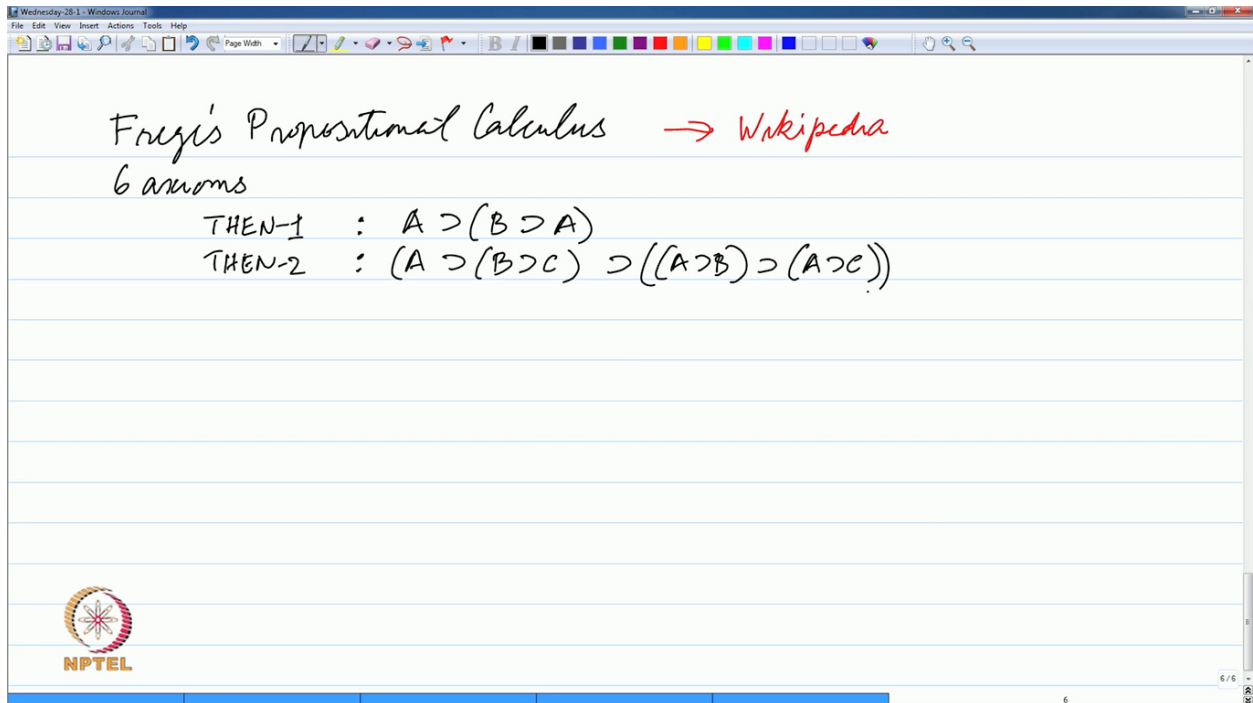 Wednesday-28-1 - Windows Journal
File Edit View Insert Actions Tools Help
Page Width B I
Frege's Propositional Calculus → Wikipedia
6 axioms
THEN-1 : A ⊃ (B ⊃ A)
THEN-2 : (A ⊃ (B ⊃ C) ⊃ ((A ⊃ B) ⊃ (A ⊃ C))
NPTEL
6 / 6
6